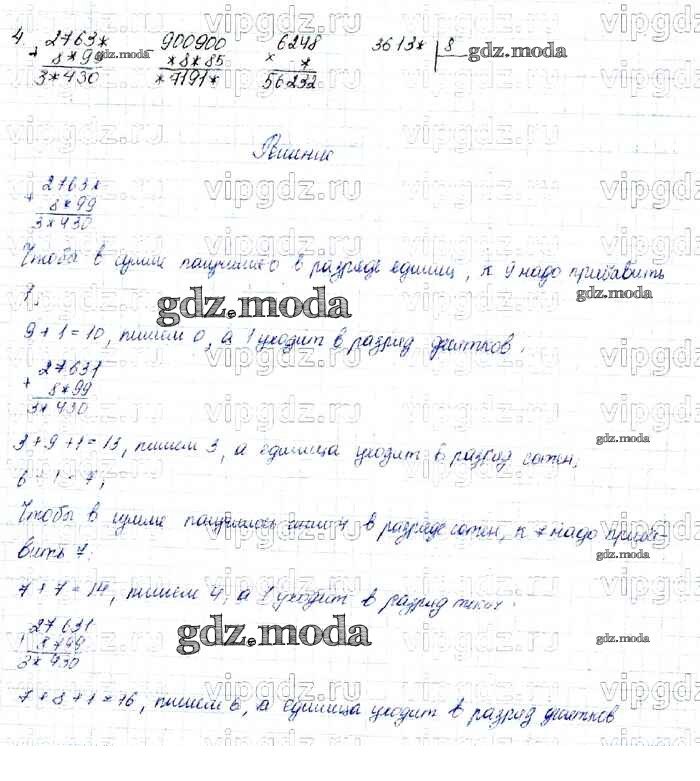 4 2763* 900900 6248 3613* 8
+ 8*99 - *8*85 × *
3*430 *7191* 56232
Решение
2763*
+ 8*99
3*430
Чтобы в сумме получилось 0 в разряде единиц, к 9 надо прибавить
1.
9+1=10, пишем 0, а 1 уходит в разряд десятков.
27631
+ 8*99
3*430
3+9+1=13, пишем 3, а единица уходит в разряд сотен;
6+1=7;
Чтобы в сумме получилось число 4 в разряде сотен, к 7 надо приба-
вить 7;
7+7=14, пишем 4, а 1 уходит в разряд тысяч.
27631
8799
3*430
7+8+1=16, пишем 6, а единица уходит в разряд десятков
vipgdz.ru
gdz.moda